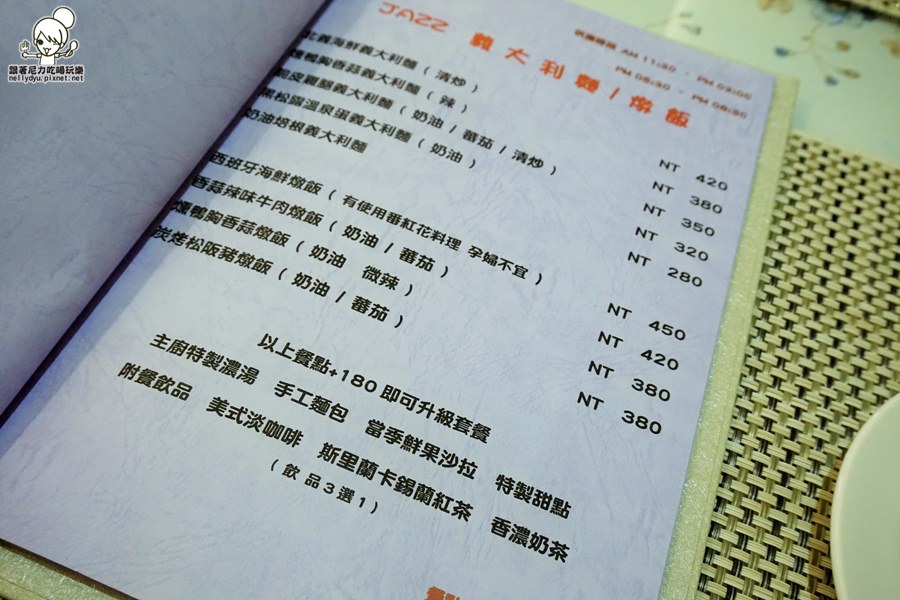 跟著尼力吃喝玩樂
nellydyu.pixnet.net
JAZZ 義大利麵/燉飯
AM 11:30 - PM 03:00
PM 05:30 - PM 08:30
北義海鮮義大利麵(清炒) NT 420
燻鴨胸香蒜義大利麵(辣) NT 380
脆皮雞腿義大利麵(奶油/蕃茄/清炒) NT 350
黑松露溫泉蛋義大利麵(奶油) NT 320
奶油培根義大利麵 NT 280
西班牙海鮮燉飯(有使用蕃紅花料理 孕婦不宜) NT 450
香蒜辣味牛肉燉飯(奶油/蕃茄) NT 420
燻鴨胸香蒜燉飯(奶油 微辣) NT 380
炭烤松阪豬燉飯(奶油/蕃茄) NT 380
以上餐點+180 即可升級套餐
主廚特製濃湯 手工麵包 當季鮮果沙拉 特製甜點
附餐飲品 美式淡咖啡 斯里蘭卡錫蘭紅茶 香濃奶茶
(飲品3選1)